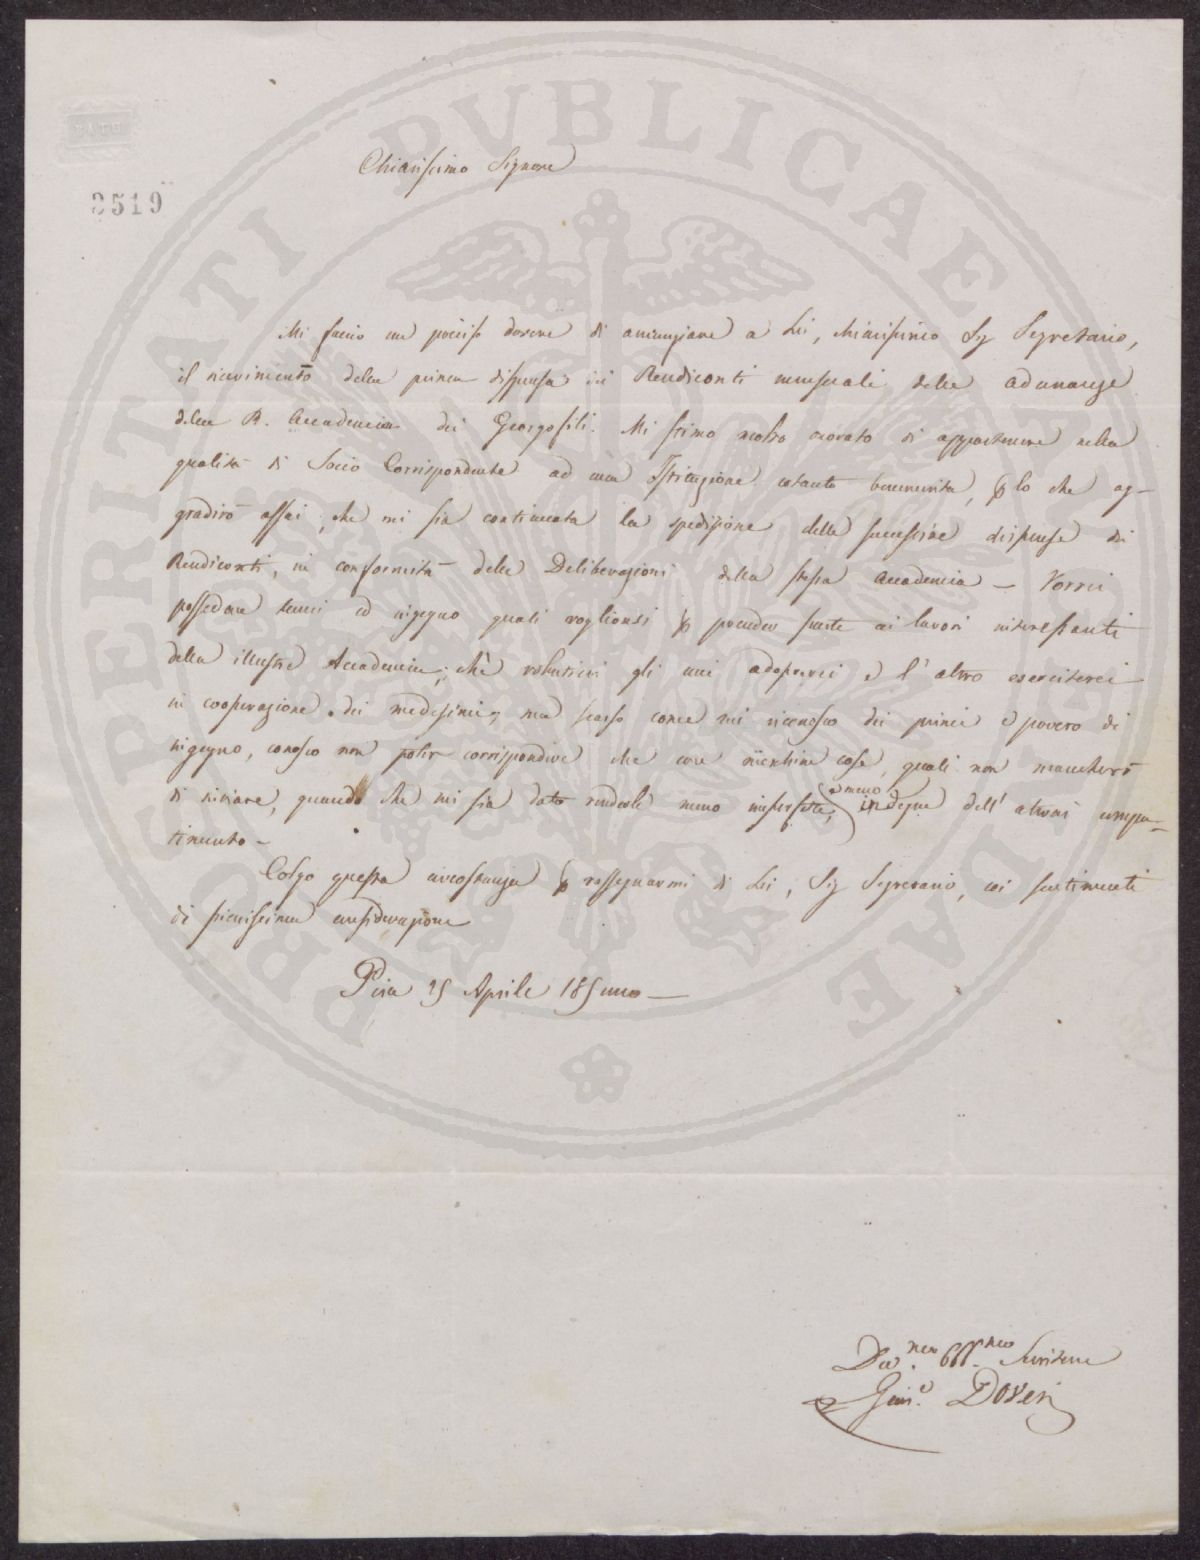 BATH
3519
Chiarissimo Signore
Mi faccio un preciso dovere di annunziare a Lei, chiarissimo Sig Segretario,
il ricevimento della prima dispensa dei Rendiconti mensuali delle adunanze
della R. Accademia dei Georgofili. Mi stimo molto onorato di appartenere nella
qualità di Socio Corrispondente ad una Istituzione cotanto benemerita, per lo che ag-
gradirò assai, che mi sia continuata la spedizione delle successive dispense dei
Rendiconti, in conformità delle Deliberazioni della stessa Accademia – Vorrei
possedere lumi ed ingegno quali voglionsi per prender parte ai lavori interessanti
della illustre Accademia; chè volentieri gli uni adoprerei e l'altro eserciterei
in cooperazione dei medesimi; ma scarso come mi riconosco dei primi e povero di
ingegno, conosco non poter corrispondere che con meschine cose, quali non mancherò
di inviare, quando che mi sia dato renderle meno imperfette, e meno indegne dell'altrui compa-
timento –
Colgo questa circostanza per rassegnarmi di Lei, Sig Segretario, coi sentimenti
di pienissima considerazione
Pisa 25 Aprile 185uno –
Dev.mo Obb.mo Servitore
Gius.e Doveri
PROSPERITATI PVBLICAE AVGENDAE